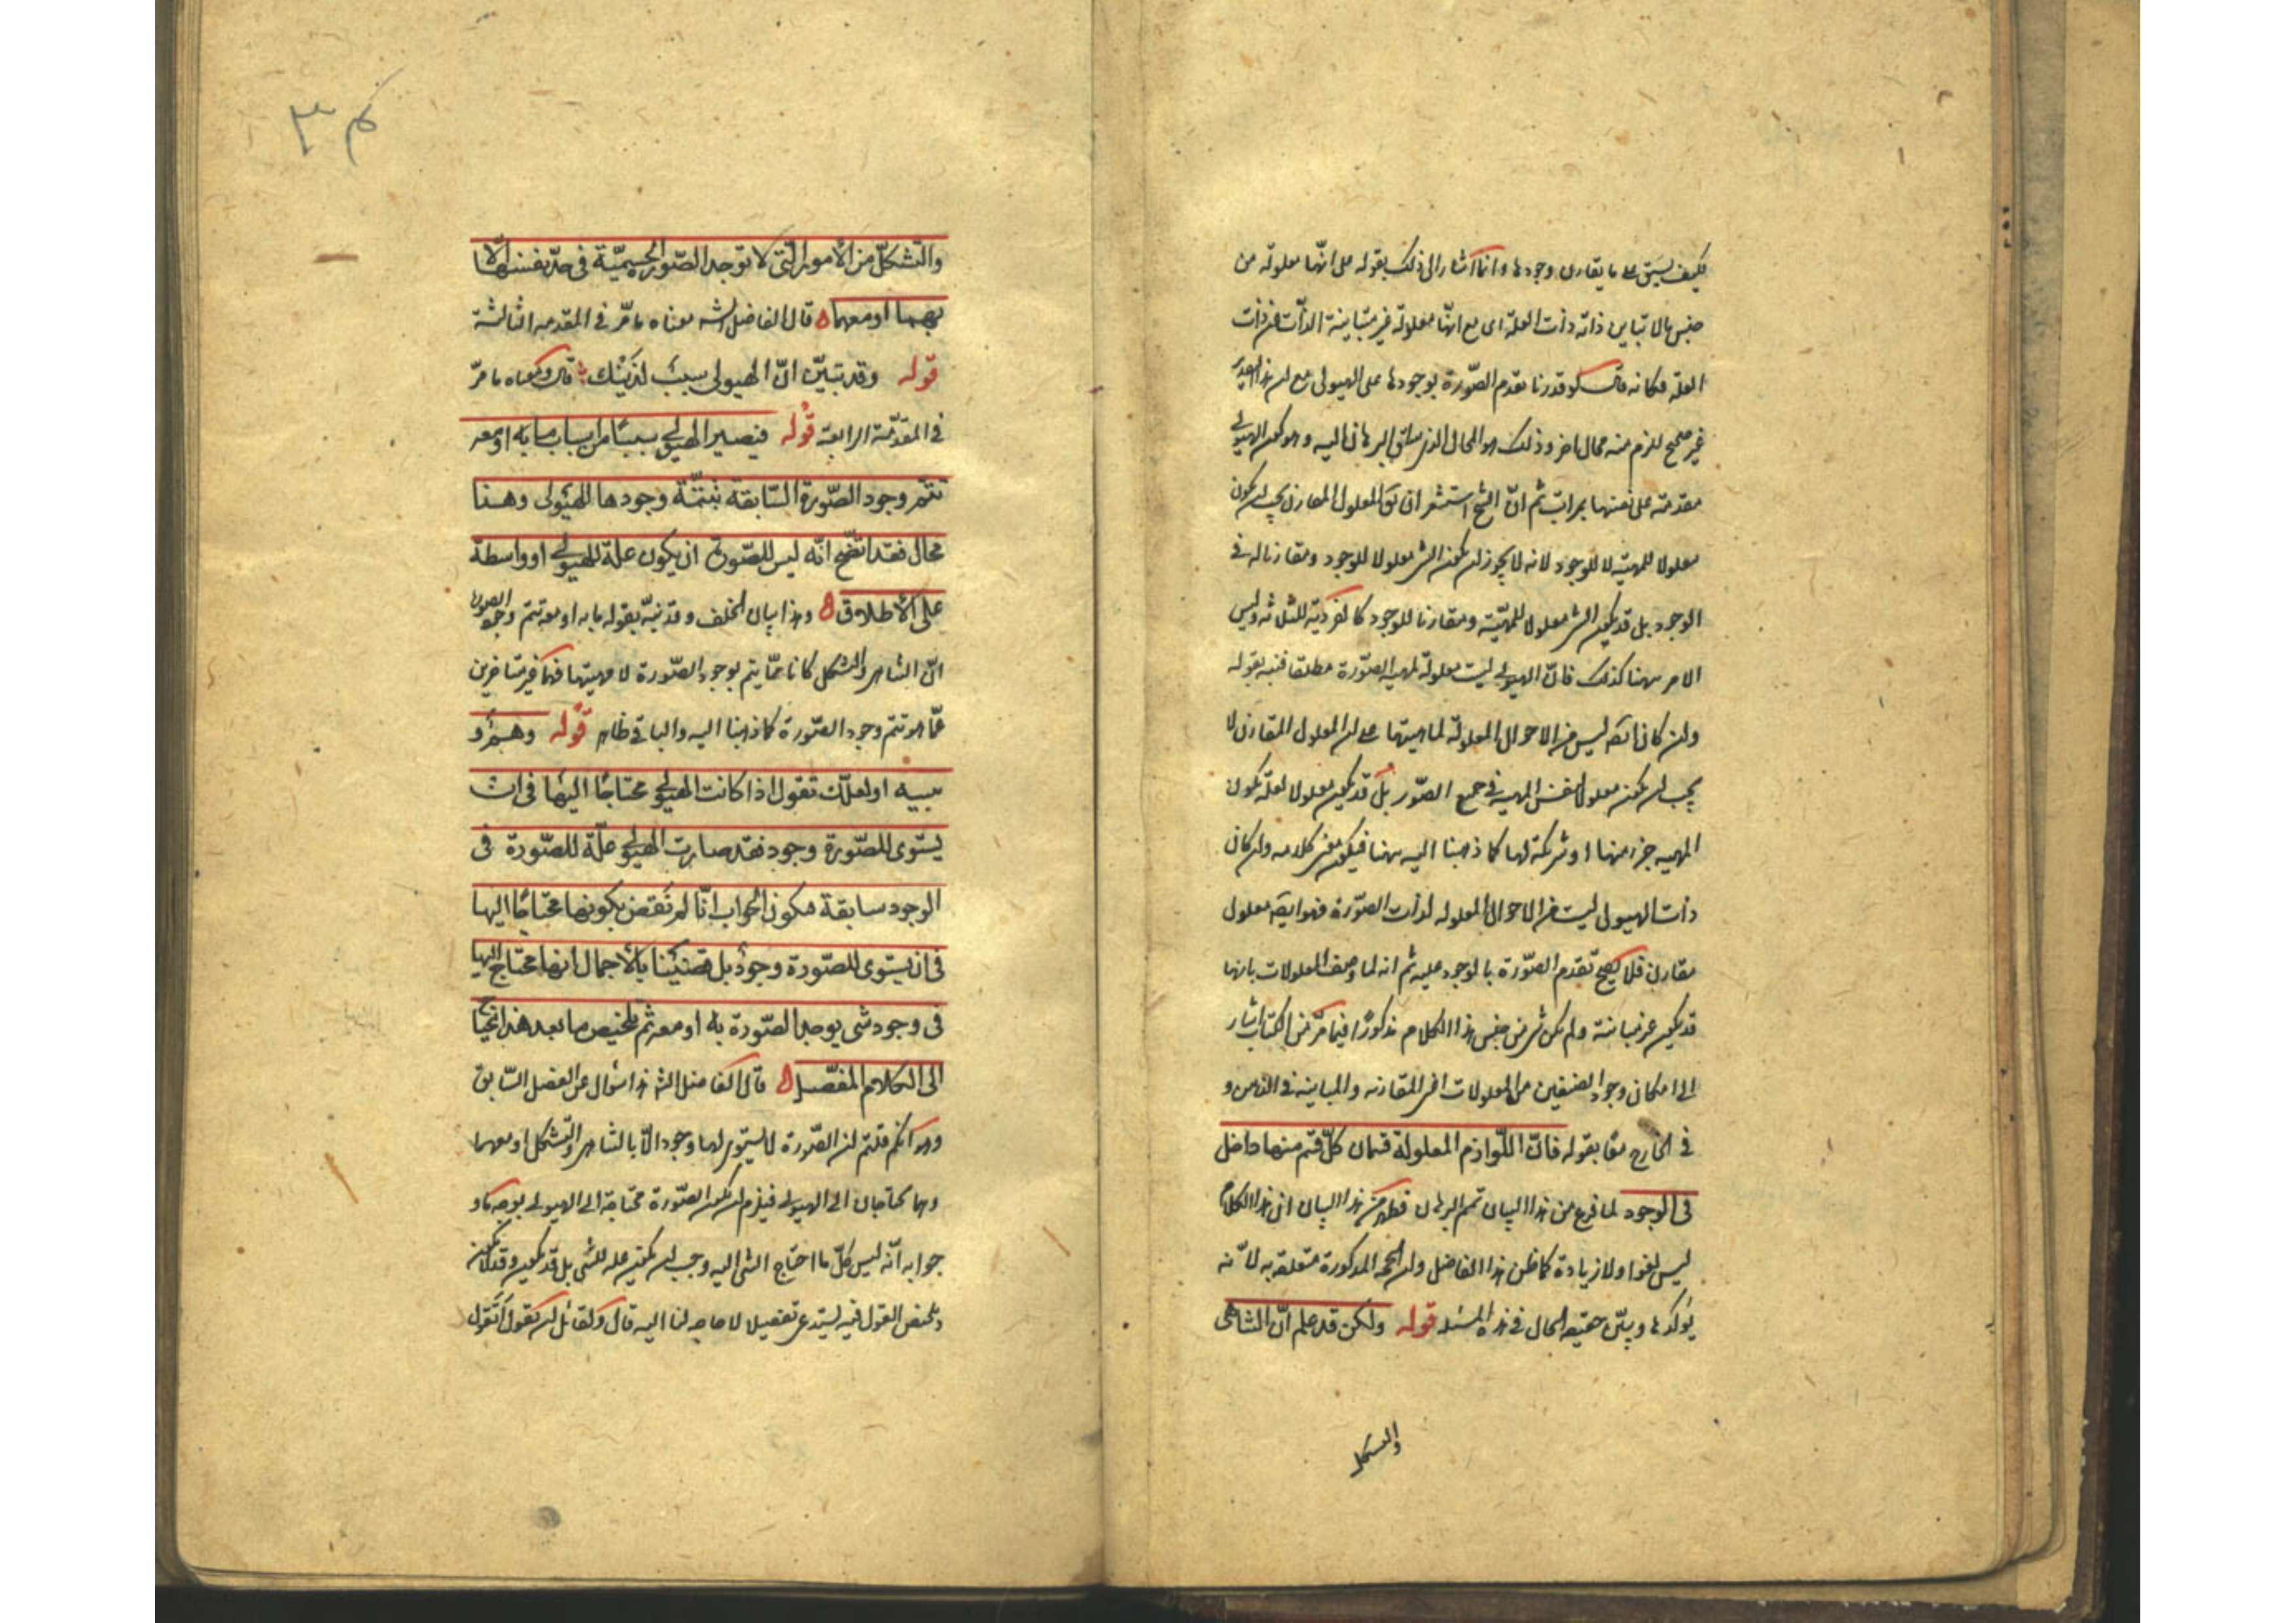 فكيف يسبق على ما يقارن وجودها وانما اشار الى ذلك بقوله على انها معلولة من
جنس ما لا تباين ذاته ذات العلة اى مع انها معلولة غير متباينة الذات عن ذات
العلة فكانه قال لو قدرنا تقدم الصّورة بوجودها على الهيولى مع ان هذا التقدير
غير صحيح للزم منه محال اخر وذلك هو المحال الذى ساق البرهان اليه وهو كون الهيولى
متقدمة على نفسها بمراتب ثم انّ الشيخ استشعر ان يق المعلول المقارن يجب ان يكون
معلولا للمهيّة لا للوجود لانه لا يجوز ان يكون الشى معلولا للوجود ومقارنا له فى
الوجود بل قد يكون الشى معلولا للمهيّة ومقارنا للوجود كالفردية للثلاثة وليس
الامر ههنا كذلك فانّ الهيولى ليست معلولة لمهية الصّورة مطلقا فنبه بقوله
وان كان ايضا ليس من الاحوال المعلولة لماهيتها على ان المعلول المقارن لا
يجب ان يكون معلولا لنفس المهية فى جميع الصّور بل قد يكون معلولا لعلة يكون
المهية جزء منها او شريكة لها كما ذهبنا اليه ههنا فيكون معنى كلامه وان كان
ذات الهيولى ليست من الاحوال المعلولة لذات الصّورة فهو ايضا معلول
مقارن فلا يصح تقدم الصّورة بالوجود عليه ثم انه لما وصف المعلولات بانها
قد يكون غير مباينة ولم يكن شى من جنس هذا الكلام مذكورًا فيما مرّ من الكتاب اشار
الى امكان وجود الصنفين من المعلولات اعنى المقارنه والمباينه فى الذهن و
فى الخارج معًا بقوله فانّ اللّوازم المعلولة قسمان كلّ قسم منها داخل
فى الوجود لما فرغ من هذا البيان تمم البرهان فظهر من هذا البيان ان هذا الكلام
ليس لغوا ولا زيادة كما ظن هذا الفاضل وان الحجة المذكورة متعلقة به لانّه
يؤكدها ويبيّن حقيقة الحال فى هذه المسئلة قوله ولكن قد علم انّ التناهى
والتشكل
والتشكّل من الأمور الّتى لا توجد الصّور الجسميّة فى حدّ نفسها الّا
بهما او معهما قال الفاضل الشه معناه ما مرّ فى المقدمه الثالثة
قوله وقد تبيّن انّ الهيولى سبب لذينك قال ومعناه ما مرّ
فى المقدّمة الرابعة قوله فتصير الهيولى سببًا من اسباب ما به او معه
تتمّ وجود الصّورة السّابقة بتتمّة وجودها للهيولى وهذا
محال فقد اتّضح انّه ليس للصّورة ان يكون علّة للهيولى او واسطة
على الأطلاق وهذا بيان الخلف وقد نبّه بقوله ما به او معه تتم وجود الصورة
انّ التناهى والتشكل كانا ممّا يتم بوجود الصّورة لا مهيتها فهما غير متاخرين
عمّا هو تتم وجود الصّورة كما ذهبنا اليه والباقى ظاهر قوله وهم و
تنبيه او لعلّك تقول اذا كانت الهيولى محتاجًا اليها فى ان
يستوى للصّورة وجود فقد صارت الهيولى علّة للصّورة فى
الوجود سابقة فيكون الجواب انّا لم نقض بكونها محتاجًا اليها
فى ان يستوى للصّورة وجودٌ بل قضينا بالأجمال انها محتاج اليها
فى وجود شى يوجد الصّورة به او معه ثم تلخيص ما بعد هذا يحتاج
الى الكلام المفصّل قال الفاضل الشه هذا سؤال عن الفصل السّابق
وهو انكم قلتم ان الصّورة لا يستوى لها وجود الّا بالتناهى والتشكل او معهما
وهما محتاجان الى الهيولى فيلزم ان يكون الصّورة محتاجة الى الهيولى بوجه ما و
جوابه انّه ليس كلّ ما احتاج الشى اليه وجب ان يكون علة للشى بل قد يكون وقد لا يكون
وتلخيص القول فيه يستدعى تفصيلا لا حاجه لنا اليه قال ولقائل ان يقول أتقول